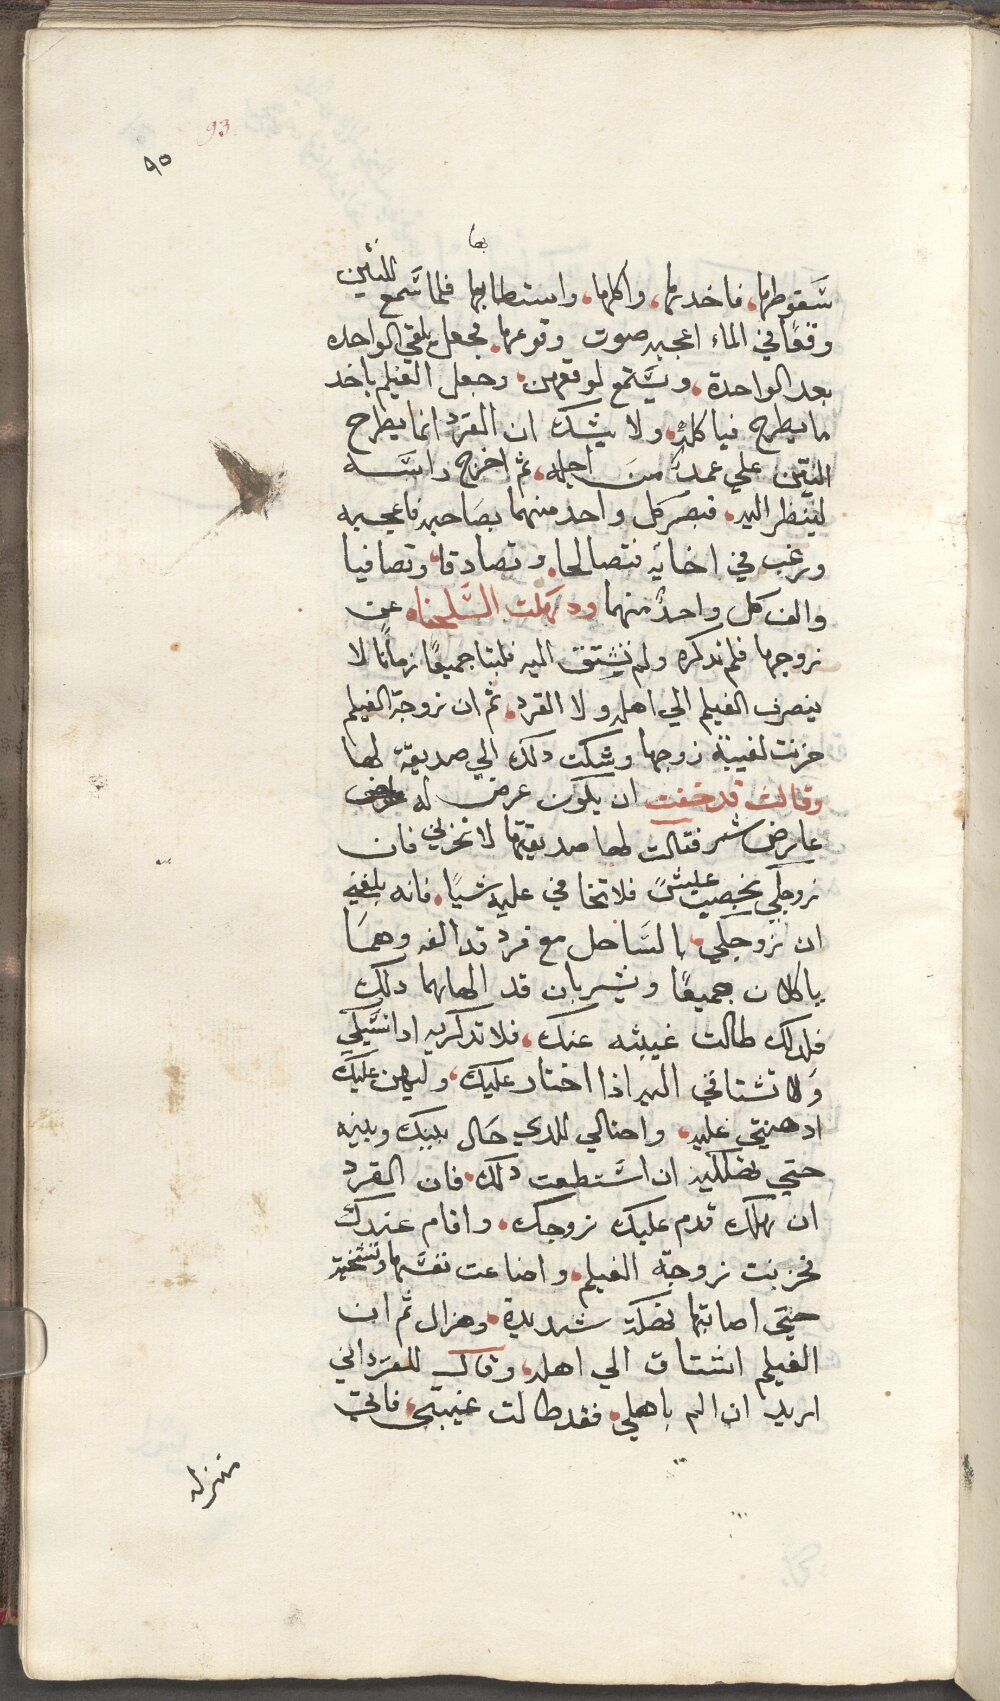 93
٩٥
بها
سَقوطها، فاخدها، واكلها، واستطابها فلما سَمع للتين
وقعًا في الماء اعجبه صوت وقوعها. فجعل يلقي الواحده
بعد الواحدة. ويسَتمع لوقعهن. وجعل الغيلم ياخد
ما يطرح فياكله. ولا يشك ان القرد انما يطرح
التين علي عمدٍ من اجله، ثم اخرج راسَه
لينظر اليه. فبصر كل واحد منهما بصاحبه فاعجبه
ورغب في اخائه فتصالحا. وتصادقا، وتصافيا
والف كل واحدٌ منهما ودهلت السَلحفاه عن
زوجها فلم تدكره ولم تشتق اليه فلبتا جميعًا زمانًا لا
ينصرف الغيلم الي اهله ولا القرد. ثم ان زوجة الغيلم
حزنت لغيبة زوجها وشكت دلك الي صديقة لها
وقالت قد خفت ان يكون عرض له
عارض شر فقالت لها صديقتها لا تحزني فان
زوجكي بخصيب عليش فلا تخافي عليه شيًا. فانه بلغني
ان زوجكي. بالسَاحل مع قرد قد الفه وهمَا
ياكلان جميعًا ويشربان قد الهاهما دلك
فلدلك طالت غيبته عنك، فلا تدكريه ادا نسَيكي
ولا تشتاقي اليه اذا اختار عليك، وليهن عليك
اد هنتي عليه. واحتالي للدي حَال بينك وبينه
حتي تهلكيه ان اسَتطعت دلك. فان القرد
ان هلك قدم عليك زوجك. واقام عندك
فحزنت زوجة الغيلم. واضاعت نفسَها
حتي اصابتها نهكة شديدة. وهزال ثم ان
الغيلم اشتاق الي اهله، وقال للقرد اني
اريد ان الم باهلي. فقد طالت غيبتي، فاتي
منزله